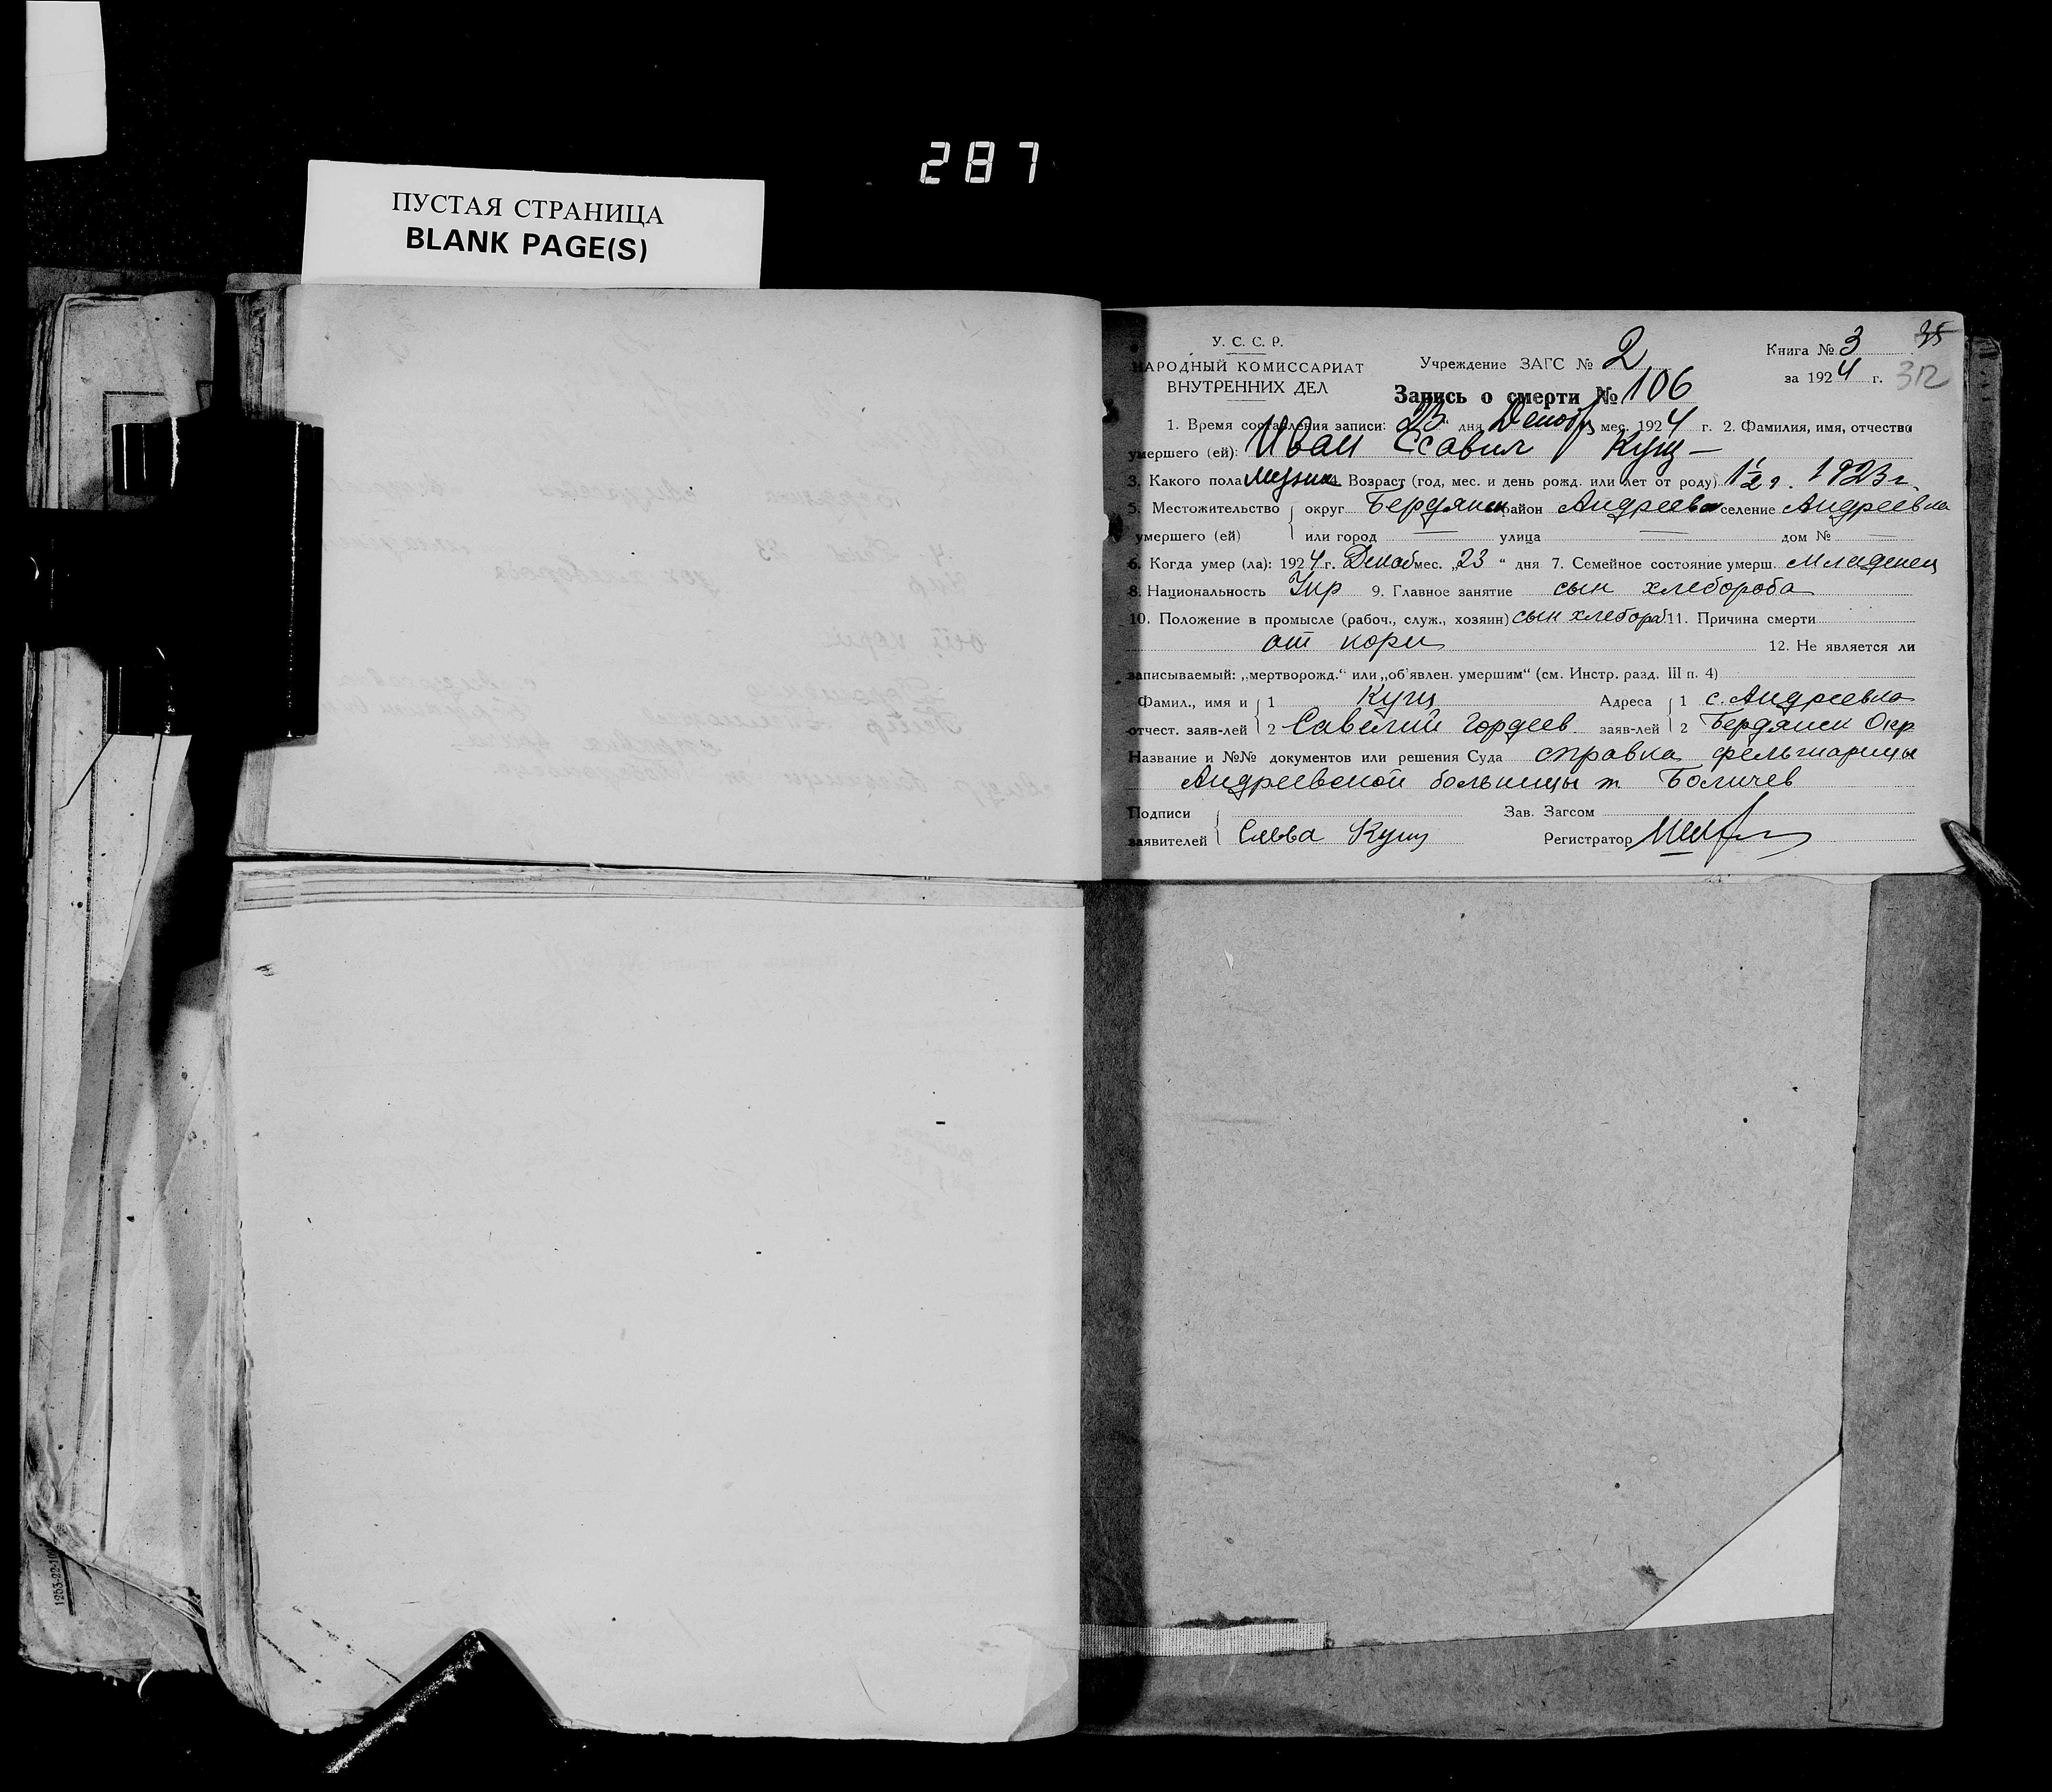 287
ПУСТАЯ СТРАНИЦА
BLANK PAGE(S)
У. С. С. Р.
НАРОДНЫЙ КОМИССАРИАТ
ВНУТРЕННИХ ДЕЛ
Учреждение ЗАГС № 2
Запись о смерти № 106
Книга № 3 35
за 1924 г. 312
1. Время составления записи: 23 " дня Декабр мес. 1924 г. 2. Фамилия, имя, отчество
умершего (ей): Иван Кущ —
3. Какого пола Возраст (год, мес. и день рожд. или лет от роду) 1½ г. 1923 г.
5. Местожительство округ Бердянск район Андреевка селение Андреевка
умершего (ей) или город — улица — дом № —
6. Когда умер (ла): 1924 г. Декаб мес. „23 “ дня 7. Семейное состояние умерш. младенец
8. Национальность Укр 9. Главное занятие сын хлебороба
10. Положение в промысле (рабоч., служ., хозяин) сын хлебороб 11. Причина смерти
от кори 12. Не является ли
записываемый: „мертворожд.“ или „об'явлен. умершим“ (см. Инстр. разд. III п. 4)
Фамил., имя и 1 Кущ Адреса 1 с. Андреевка
отчест. заяв-лей 2 Савелий Гордеев. заяв-лей 2 Бердянск Окр
Название и №№ документов или решения Суда справка фельшарицы
Андреевской больницы т
Подписи Зав. Загсом
заявителей Кущ Регистратор
1253-22-10